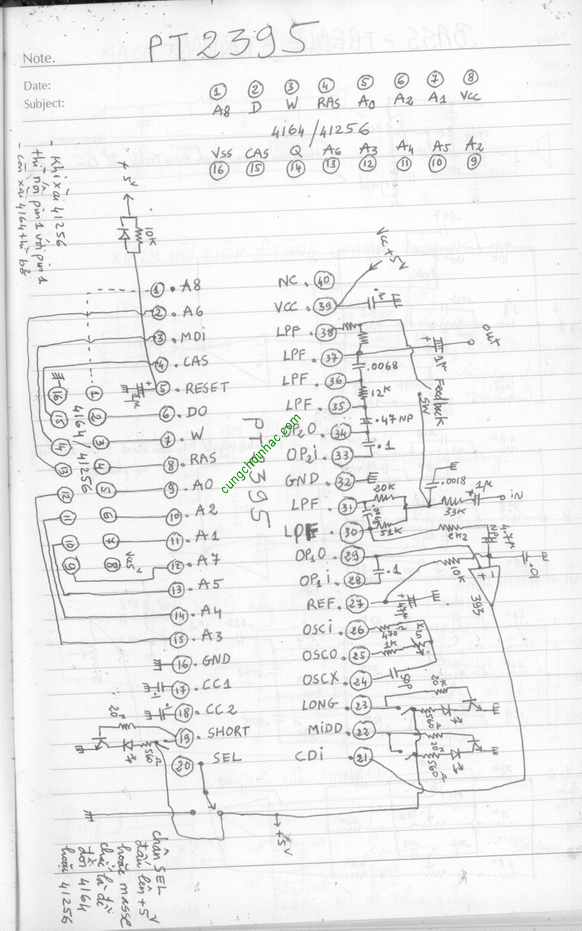 Note.
PT2395
Date:
Subject:
1 2 3 4 5 6 7 8
A8 D W RAS A0 A2 A1 VCC
4164/41256
VSS CAS Q A6 A3 A4 A5 A2
16 15 14 13 12 11 10 9
- Khi xài 41256
thì nối pin 1 với pin 1
- còn xài 4164 thì bỏ
+5V
10K
1 . A8
2 . A6
3 . MDi
4 . CAS
5 . RESET
6 . DO
7 . W
8 . RAS
9 . A0
10 . A2
11 . A1
12 . A7
13 . A5
14 . A4
15 . A3
16 . GND
17 . CC1
18 . CC2
19 . SHORT
20 . SEL
16 15 14 13 12 11 10 9
1 2 3 4 5 6 7 8
4164/41256
PT2395
cungchoinhac.com
NC . 40
VCC . 39
LPF . 38
LPF . 37
LPF . 36
LPF . 35
OP2O 34
OP2i . 33
GND . 32
LPF . 31
LPF . 30
OP1O . 29
OP1i . 28
REF . 27
OSCi . 26
OSCO . 25
OSCX . 24
LONG . 23
MiDD . 22
CDi . 21
VCC +5V
out
1µ
Feedback
SW
.0068
12K
.47NP
.1
.0018
1µ
iN
20K
33K
51K
2K2
4.7µ
NP
.01
.1
10K
393
47µ
470
1K
5K
50P
20K
560
20K
560
20K
560
+5V
chân SEL
đấu lên +5V
hoặc masse
chỉ là để
đổi 4164
hoặc 41256